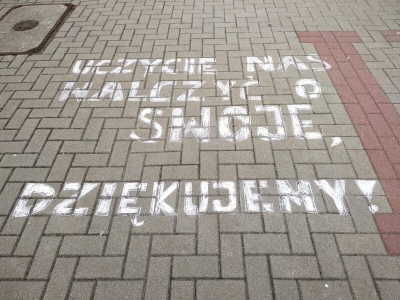 UCZYCIE NAS
WALCZYĆ O
SWOJE,
DZIĘKUJEMY!